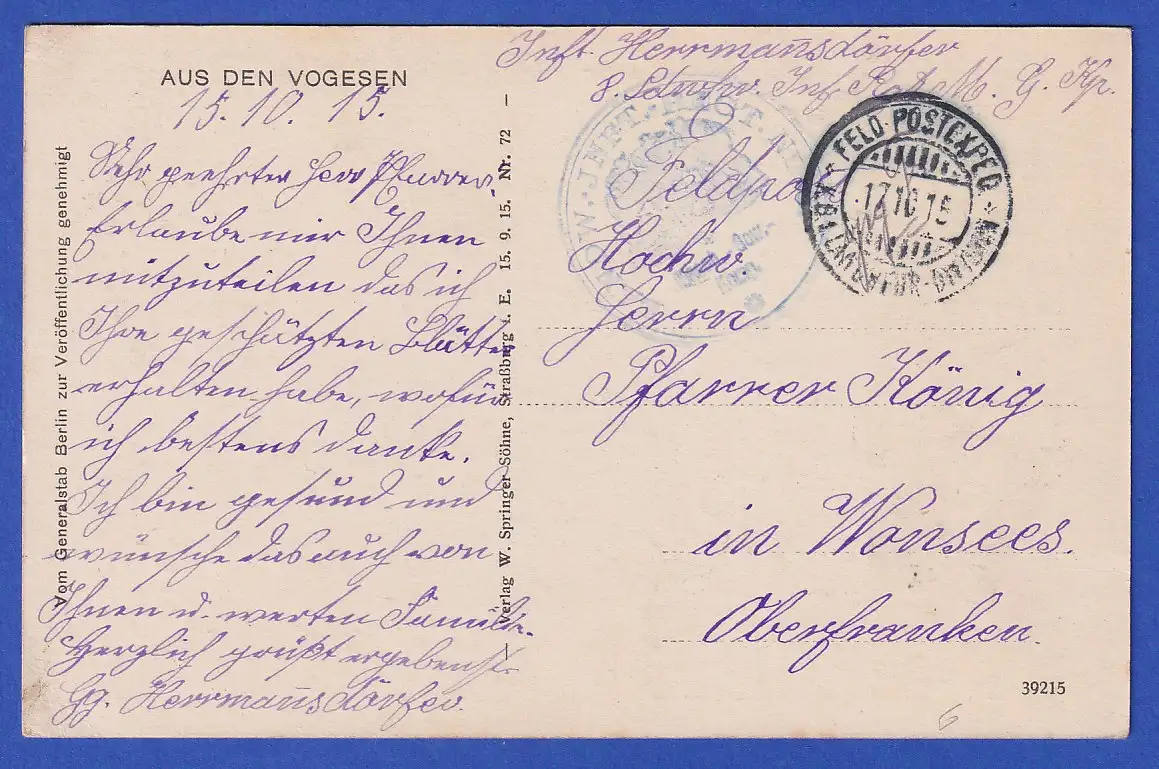 AUS DEN VOGESEN
15.10.15.
Sehr geehrter Herr Pfarrer,
Erlaube mir Ihnen
mitzuteilen das ich
Ihre geschätzten Blätter
erhalten habe, wofür
ich bestens danke.
Ich bin gesund und
wünsche das auch von
Ihnen u. werten Familie.
Herzlich grüßt ergebenst
Gg. Herrmannsdörfer
Vom Generalstab Berlin zur Veröffentlichung genehmigt
Verlag W. Springer Söhne, Straßburg i. E. 15. 9. 15. Nr. 72
Inft. Herrmannsdörfer
8. Ldwhr. Inf. M. G. Kp.
Feldpost
Hochw.
Herrn
Pfarrer König
in Wonsees.
Oberfranken.
FELD-POSTEXPED.
17 10 15
39215
6